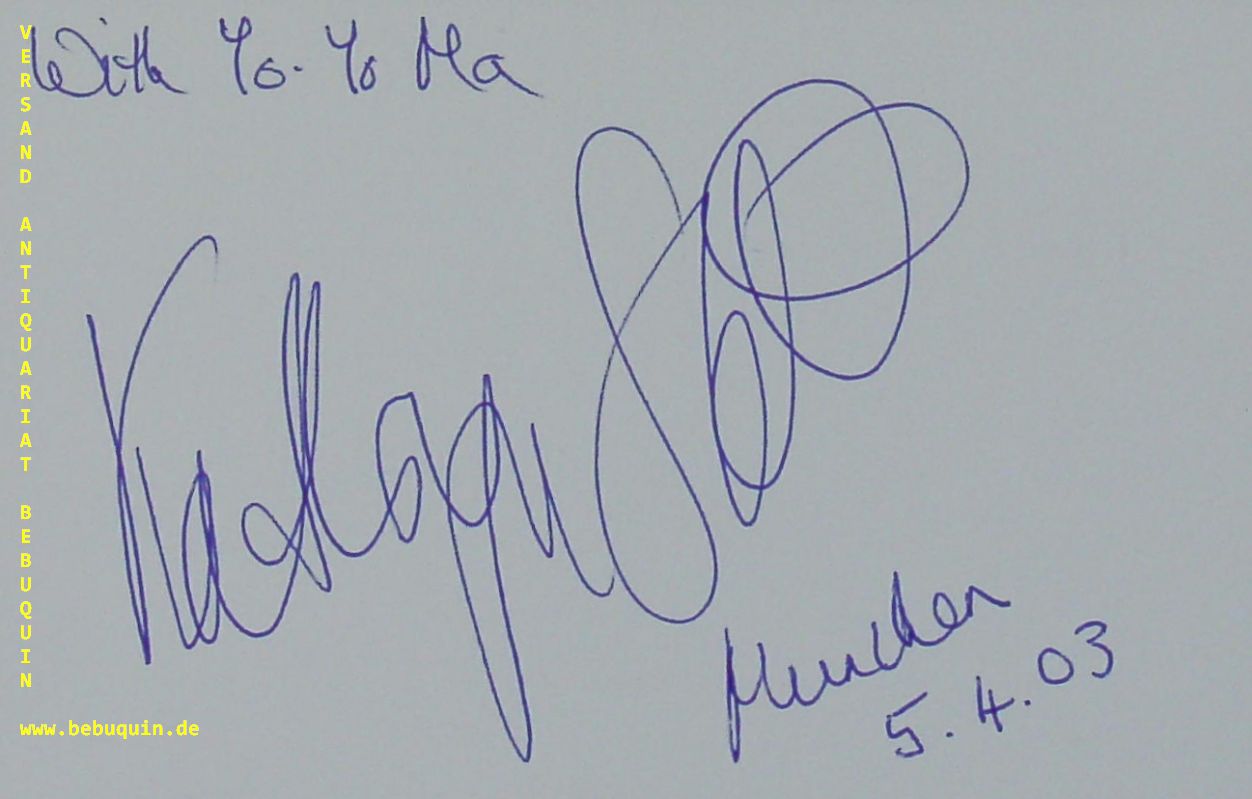 With Yo-Yo Ma
Kathryn Stott
München
5.4.03
VERSAND ANTIQUARIAT BEBUQUIN
www.bebuquin.de